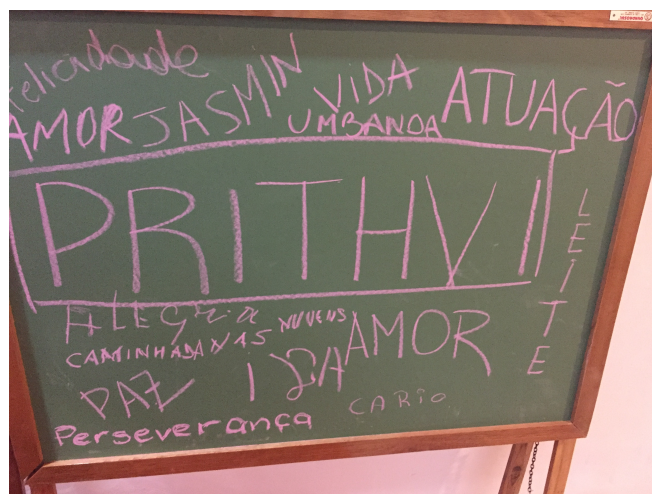 felicidade
AMOR JASMIN VIDA ATUAÇÃO
UMBANDA
PRITHVI
LEITE
ALEGRia
CAMINHADA NAS NUVENS
AMOR
PAZ
CARIO
Perseverança